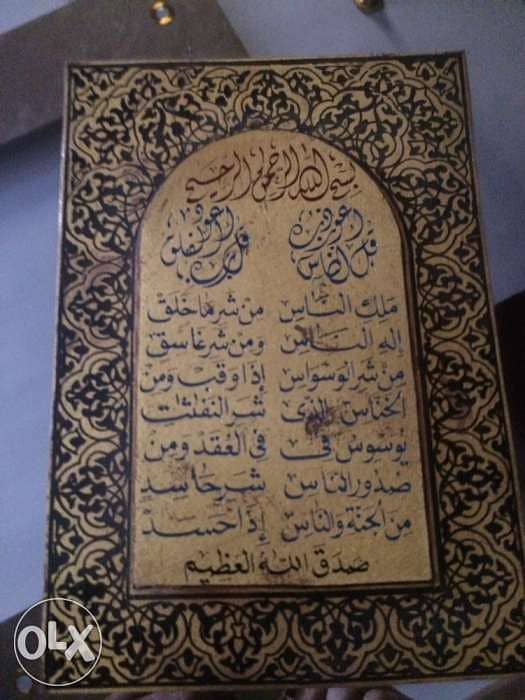 بسم الله الرحمن الرحيم
قل أعوذ برب الناس
ملك الناس
إله الناس
من شر الوسواس
الخناس الذى
يوسوس في
صدور الناس
من الجنة والناس
قل أعوذ برب الفلق
من شر ما خلق
ومن شر غاسق
إذا وقب ومن
شر النفثت
في العقد ومن
شر حاسد
إذا حسد
صدق الله العظيم
OLX